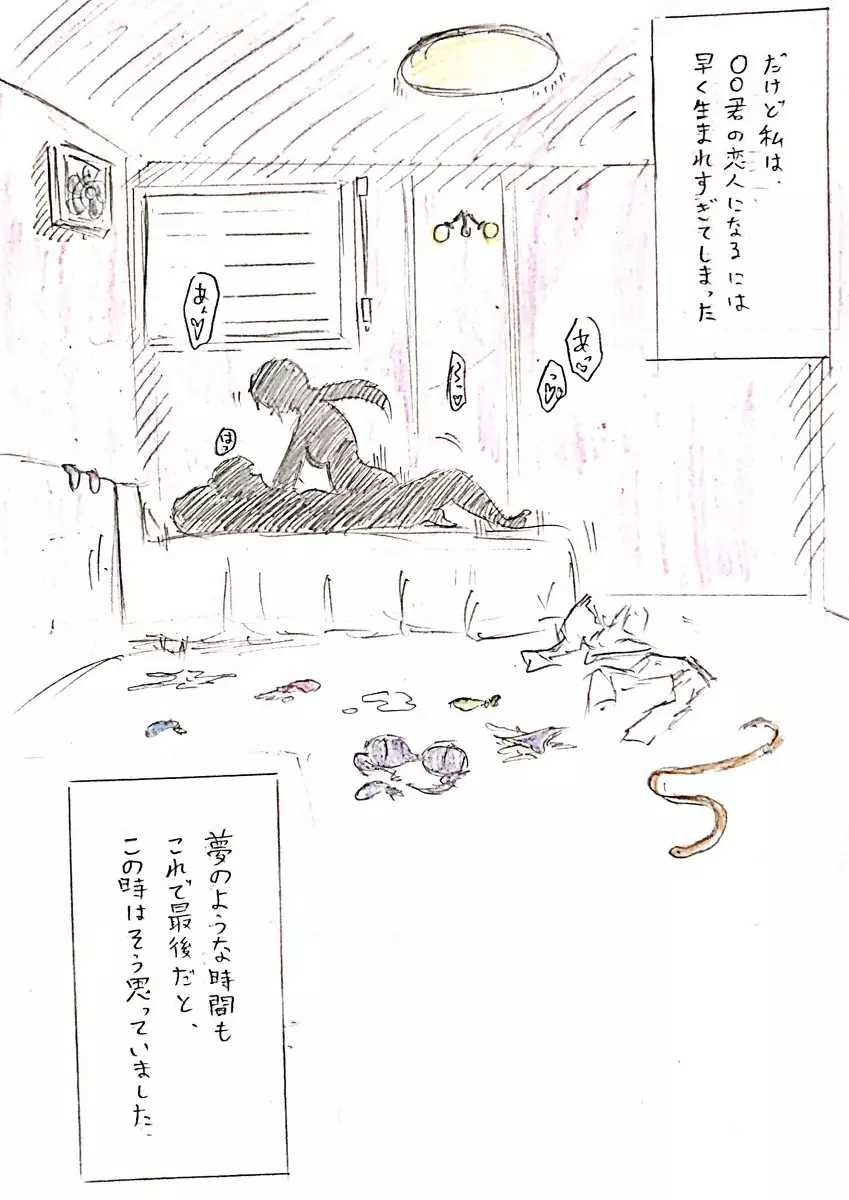 だけど私は、
〇〇君の恋人になるには
早く生まれすぎてしまった
あっ♡
あぁ♡
はっ
夢のような時間も
これで最後だと、
この時はそう思っていました